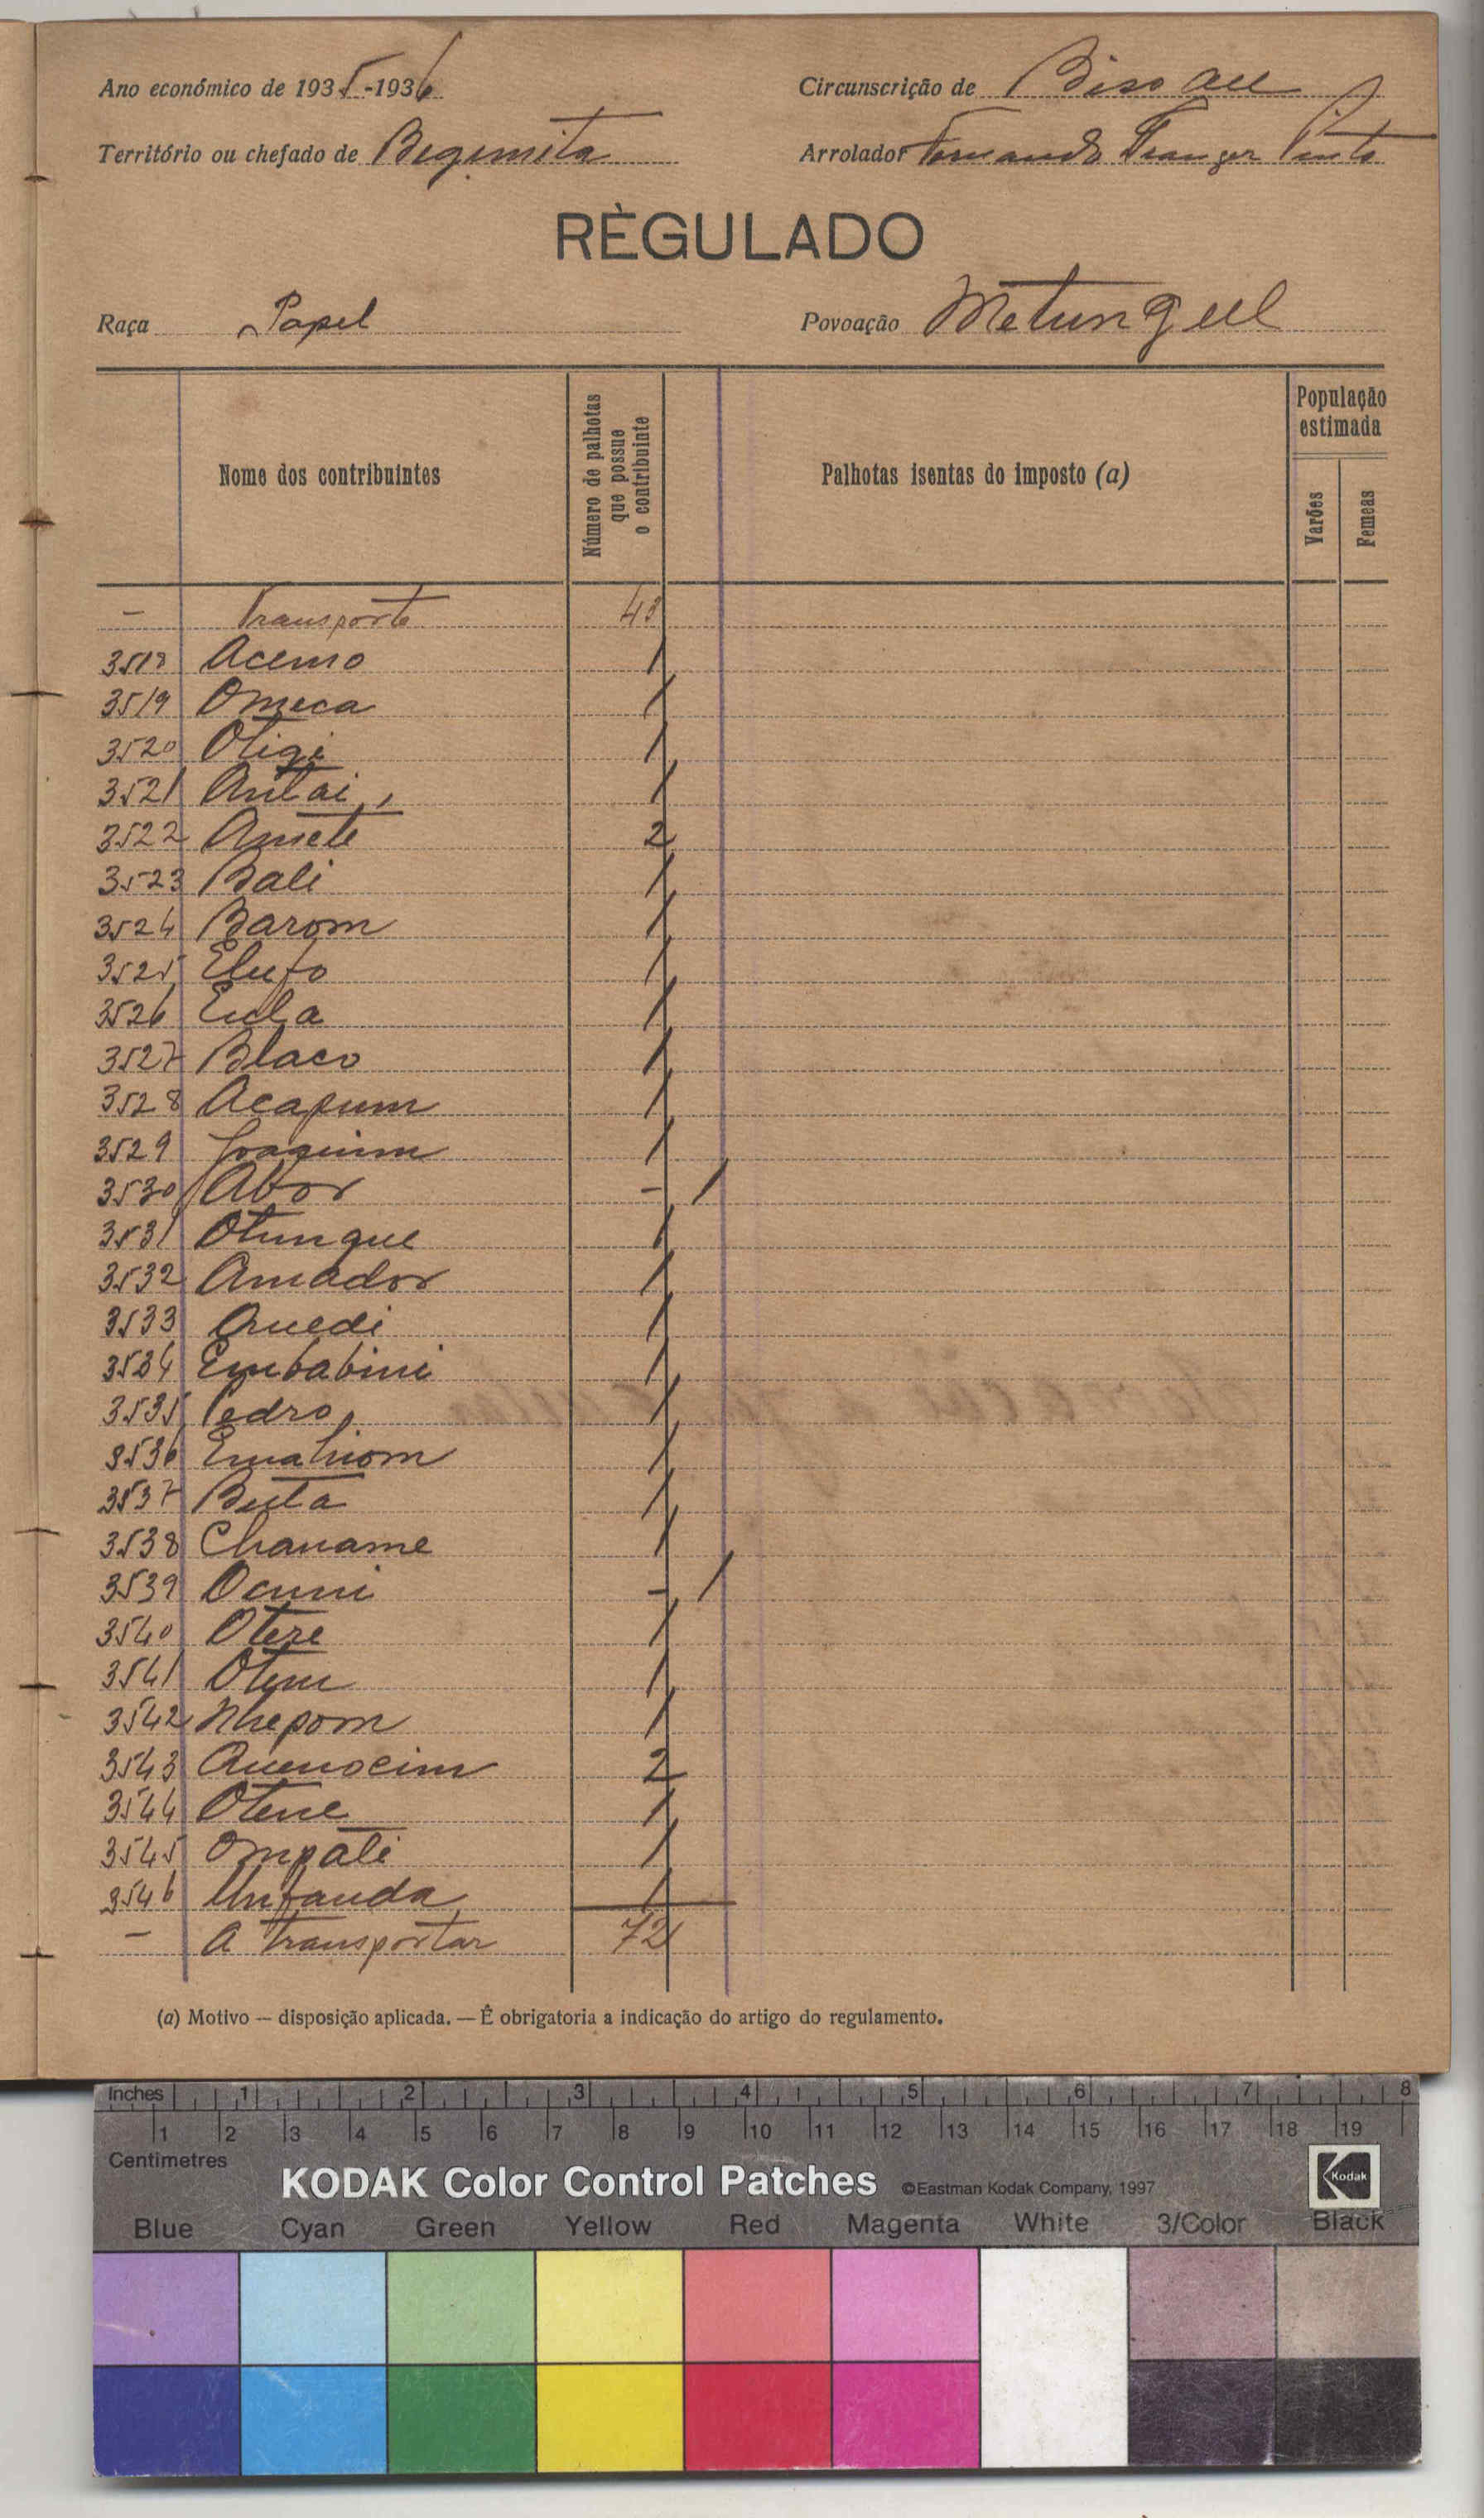 Ano económico de 1935-1936
Circunscrição de Bissau
Território ou chefado de Begimita
Arrolador Fernando Pinto
RÈGULADO
Raça Papel
Povoação Metungul
Nome dos contribuintes
Número de palhotas que possue o contribuinte
Palhotas isentas do imposto (a)
População estimada
Varões
Femeas
- Transporte 43
3518 Acemo 1
3519 Omeca 1
3520 Oligi 1
3521 Antai 1
3522 Amete 2
3523 Bali 1
3524 Barom 1
3525 Elufo 1
3526 1
3527 Blaco 1
3528 Acapum 1
3529 Joaquim 1
3530 Abor - 1
3531 Otungue 1
3532 Amador 1
3533 Quedi 1
3534 Embabini 1
3535 Pedro 1
3536 1
3537 Buta 1
3538 Chaname 1
3539 Ocuni - 1
3540 Otere 1
3541 Otem 1
3542 Nhepom 1
3543 2
3544 Otene 1
3545 Ompati 1
3546 Unfanda 1
- A transportar 72
(a) Motivo — disposição aplicada. — É obrigatoria a indicação do artigo do regulamento.
Inches 1 2 3 4 5 6 7 8
1 2 3 4 5 6 7 8 9 10 11 12 13 14 15 16 17 18 19
Centimetres
KODAK Color Control Patches ©Eastman Kodak Company, 1997 Kodak
Blue Cyan Green Yellow Red Magenta White 3/Color Black